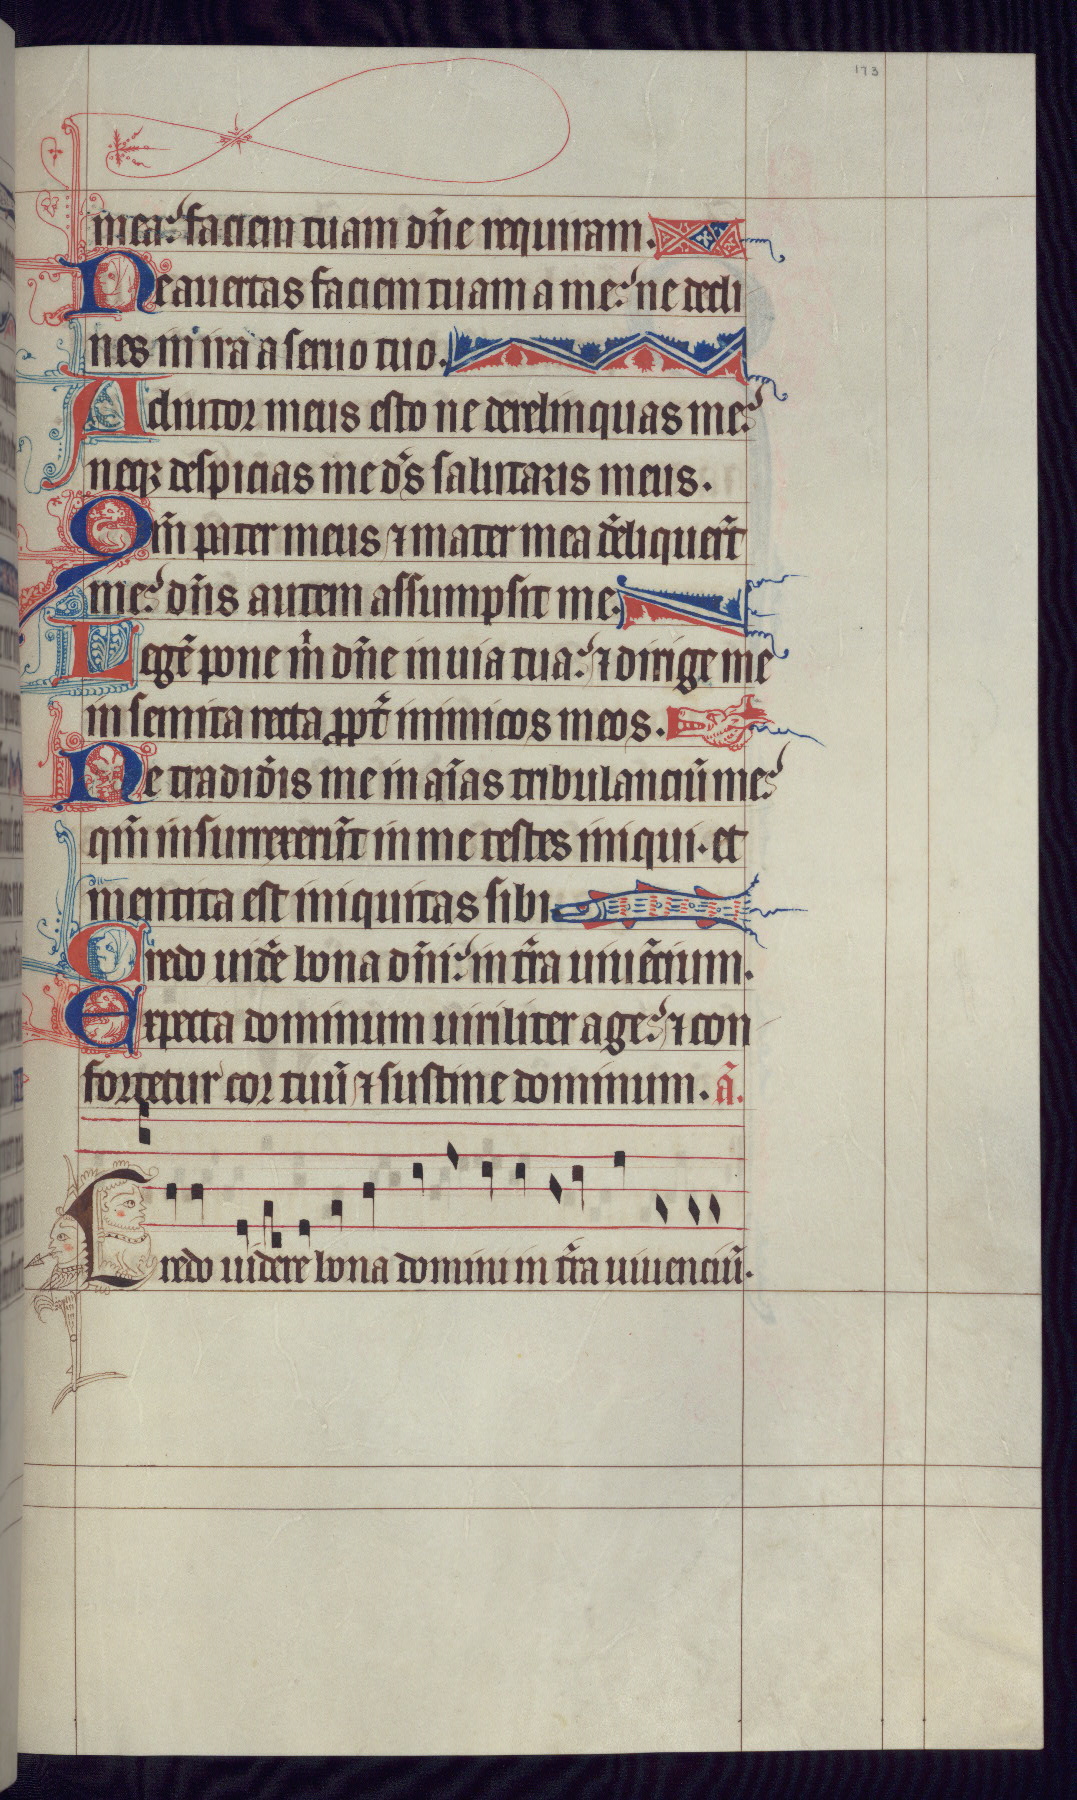 173
mea: faciem tuam dn̄e requiram.
Ne auertas faciem tuam a me: ne decli
nes in ira a seruo tuo.
Adiutor meus esto ne derelinquas me:
neqꝫ despicias me ds̄ salutaris meus.
Qm̄ pater meus ⁊ mater mea dēliquerūt
me: dn̄s autem assumpsit me.
Legē pone m̄ dn̄e in uia tua: ⁊ dirige me
in semita recta ꝓpt̄ inimicos meos.
Ne tradid̄is me in aīas tribulanciū me:
qm̄ insurrexerūt in me testes iniqui. et
mentita est iniquitas sibi.
Credo uidē bona dn̄i: in tr̄a uiuēcium.
Expecta dominum uiriliter age: ⁊ con
fortetur cor tuū ⁊ sustine dominum. ā.
Credo uidere bona domini in tr̄a uiuenciū.